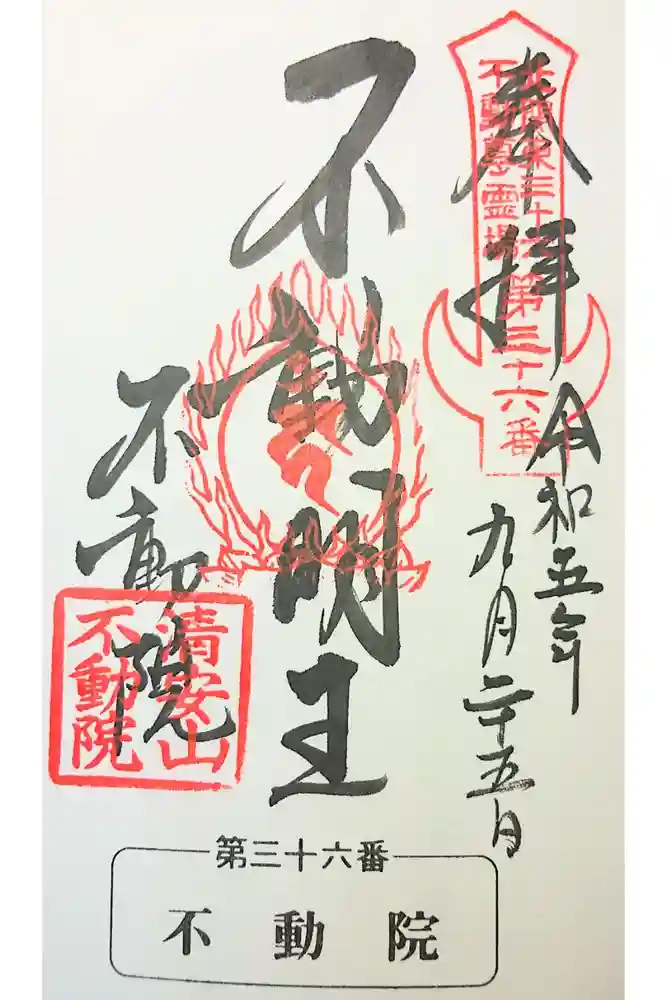 奉拝
北関東三十六
不動尊霊場
第三十六番
令和五年
九月二十五日
不動明王
不動院
清安山
不動院
第三十六番
不動院